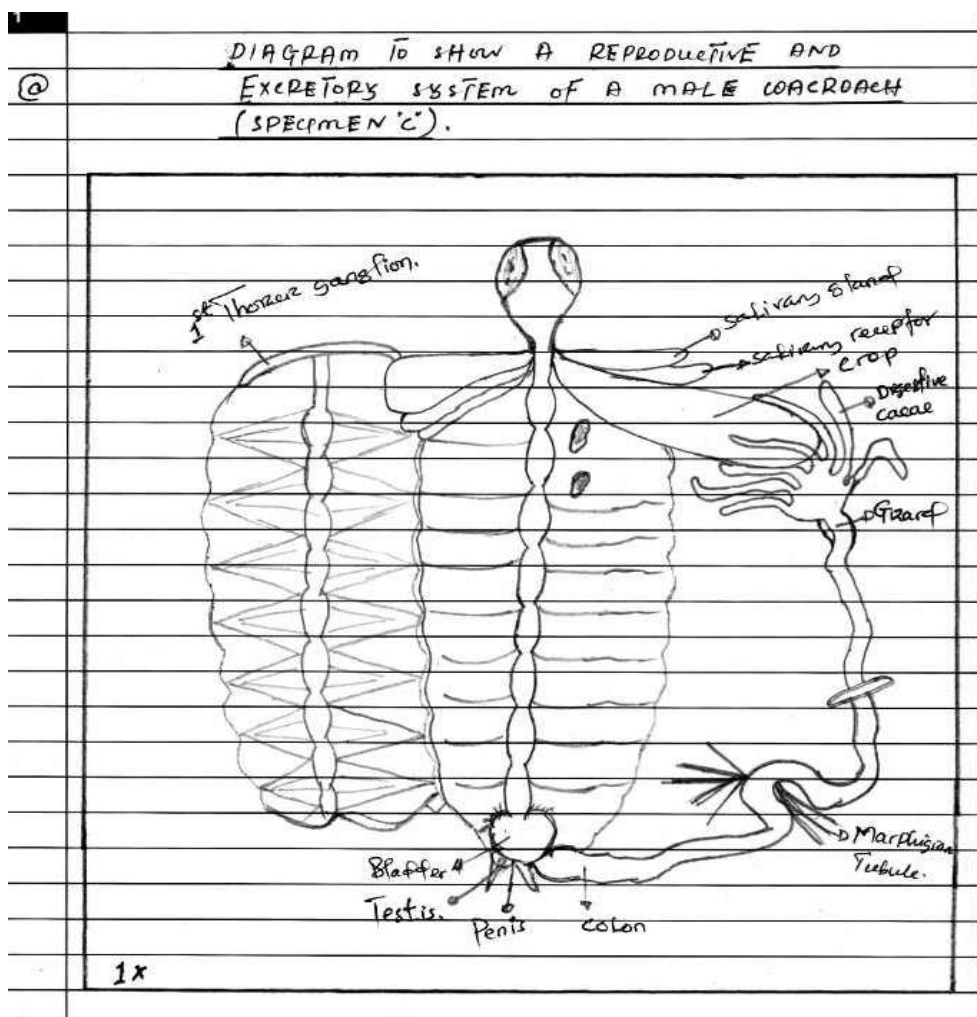 DIAGRAM TO SHOW A REPRODUCTIVE AND
@ EXCRETORY SYSTEM OF A MALE COACROACH
(SPECIMEN 'C').
1st Thorax ganglion.
Salivary gland
Salivary receptor
crop
Digestive
caeae
Gizard
Marphigian
Tubule.
Bladder
Testis.
Penis
colon
1x